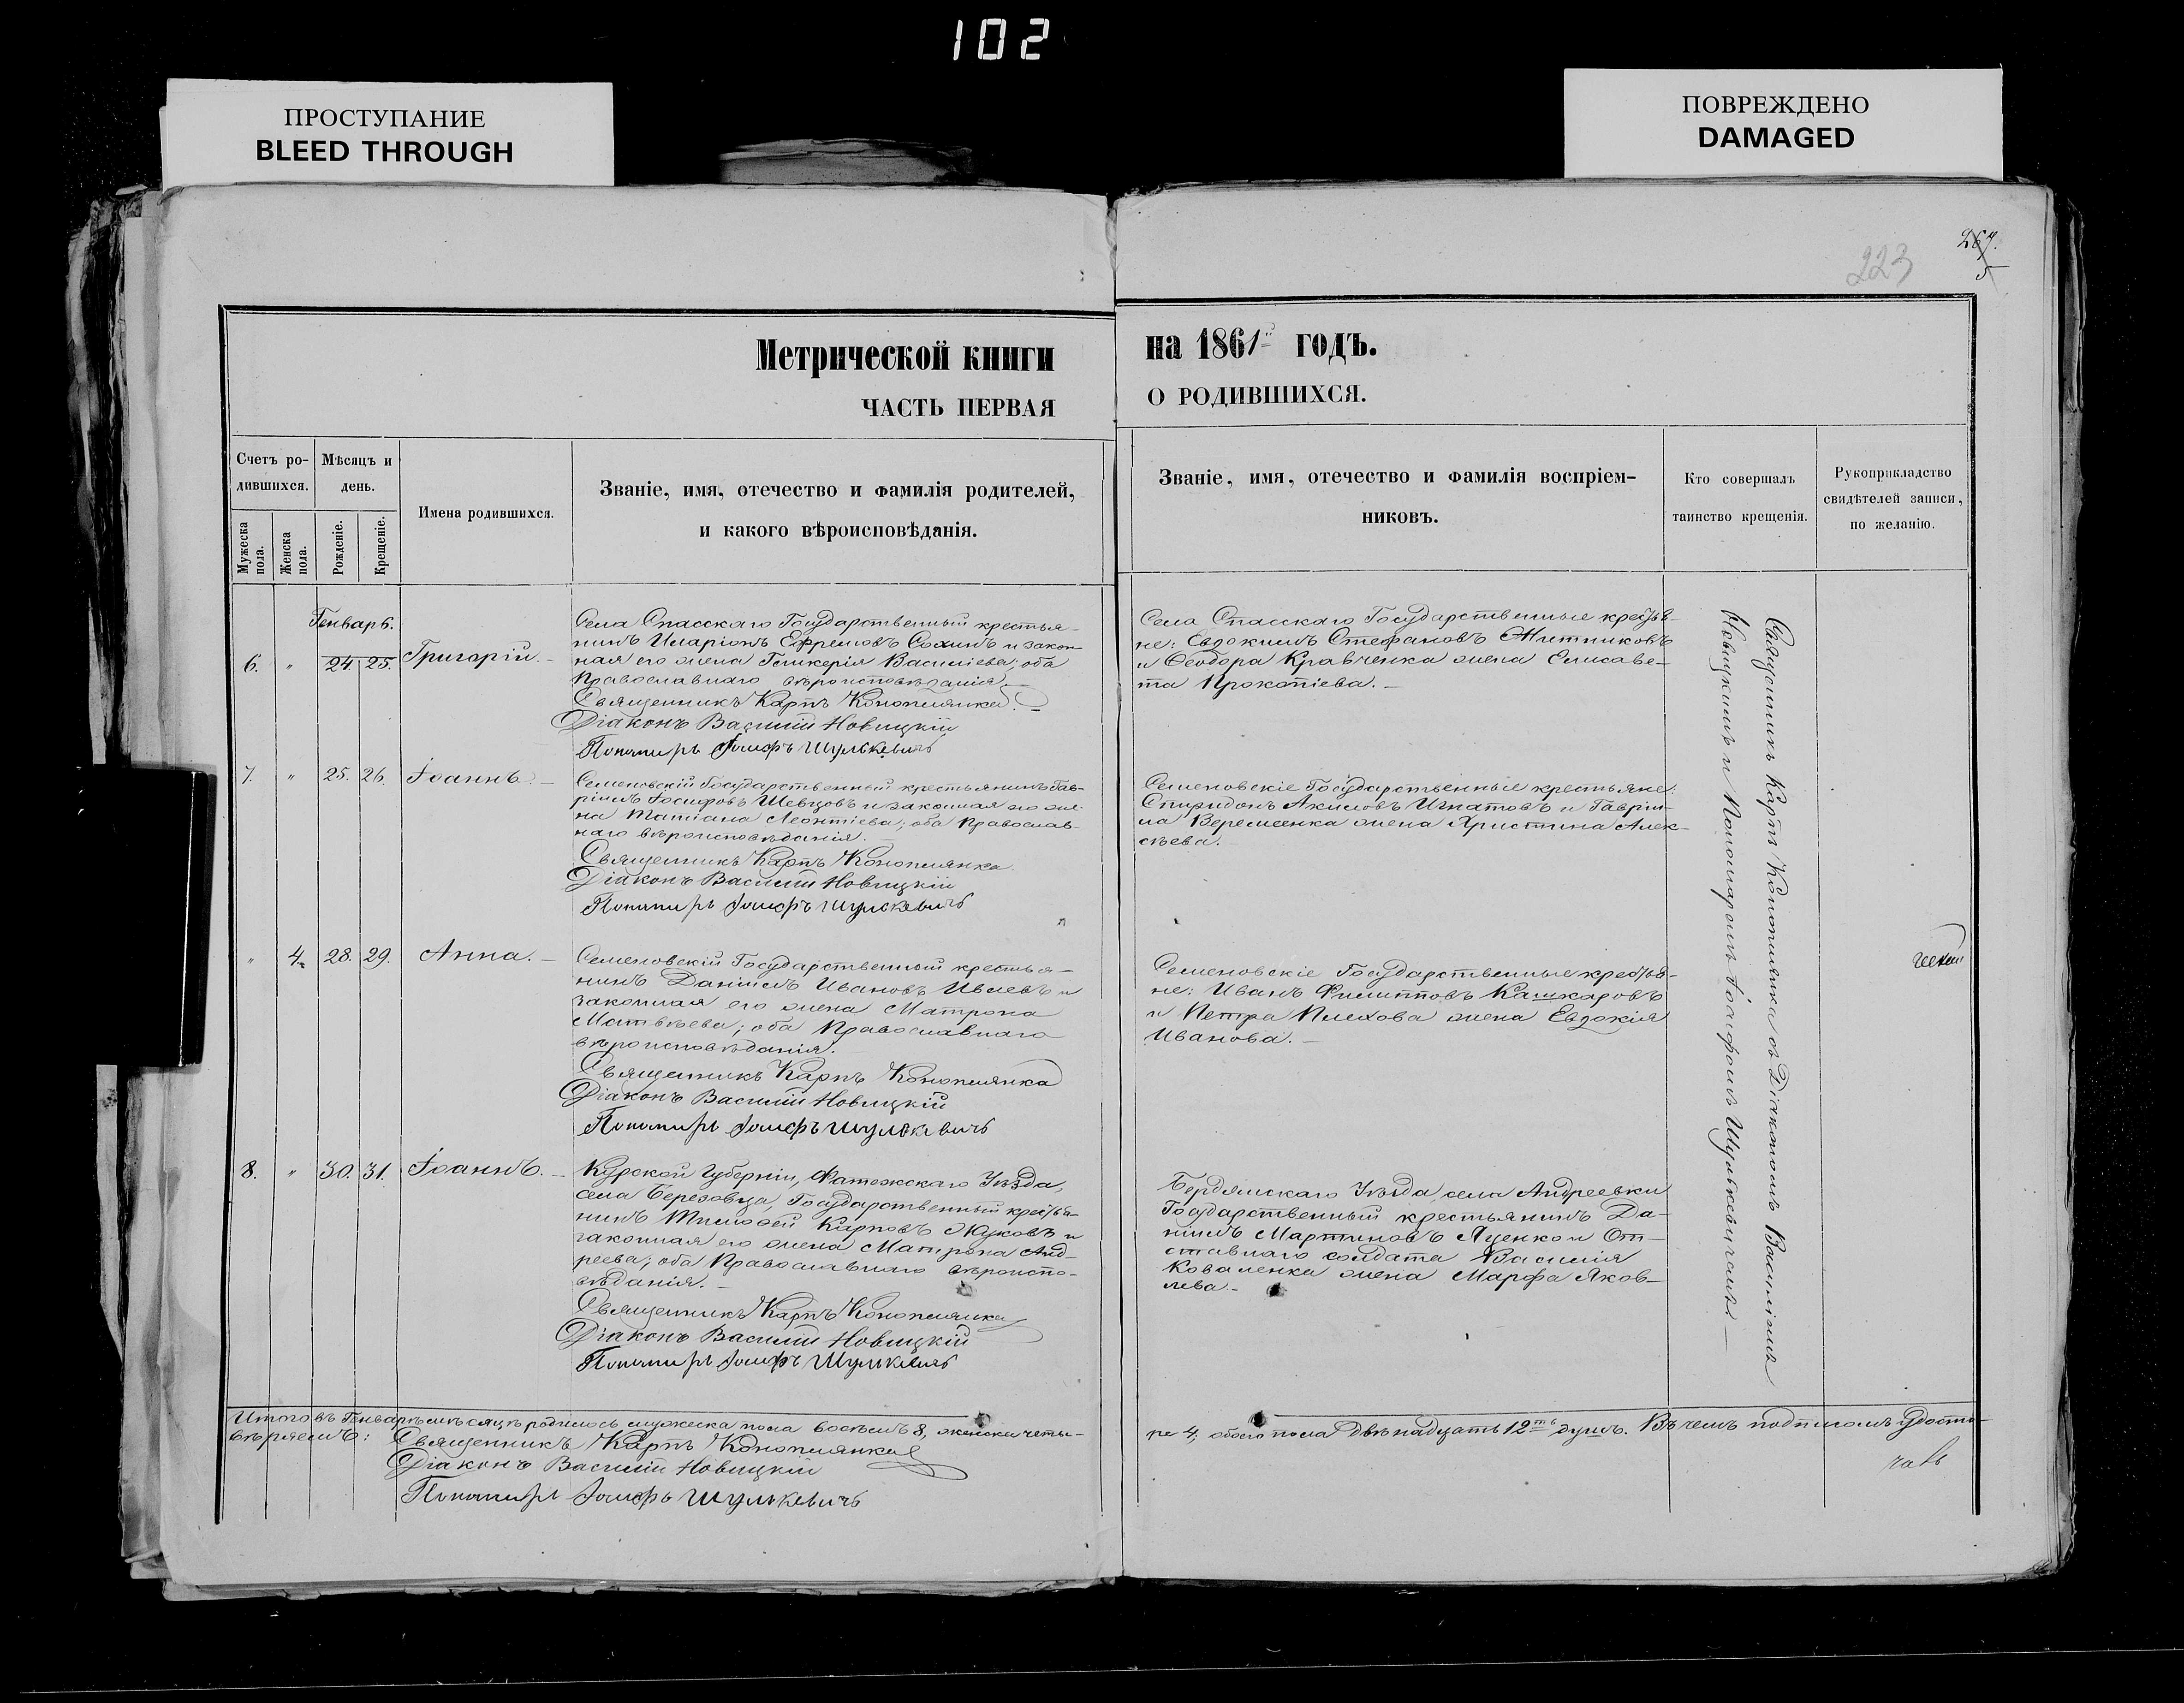 102
ПРОСТУПАНИЕ
BLEED THROUGH
ПОВРЕЖДЕНО
DAMAGED
223
267.
5
Метрической книги
на 1861 годъ.
ЧАСТЬ ПЕРВАЯ
О РОДИВШИХСЯ.
Счетъ ро-
дившихся.
Мужеска
пола.
Женска
пола.
Мѣсяцъ и
день.
Рожденіе.
Крещеніе.
Имена родившихся.
Званіе, имя, отечество и фамилія родителей,
и какого вѣроисповѣданія.
Званіе, имя, отечество и фамилія воспріем-
никовъ.
Кто совершалъ
таинство крещенія.
Рукоприкладство
свидѣтелей записи,
по желанію.
Генварь.
6. " 24 25. Григорій. —
Села Спасскаго Государственный крестья-
нинъ Иларіонъ Ефремовъ Сохинъ и закон-
ная его жена Гликерія Василіева; оба
Православнаго вѣроисповѣданія. —
Священникъ Карпъ Конопляка
Діаконъ Василій Новицкій
Пономарь Іосифъ Шулькевичъ
Села Спасскаго Государственные крестья-
не: Евдокимъ Стефановъ Житниковъ
и Ѳеодора Кравченка жена Елисаве-
та Прокопіева. —
7. " 25. 26. Іоаннъ. —
Семеновскій Государственный крестьянинъ Гав-
ріилъ Іосифовъ Шевцовъ и законная его же-
на Татіана Леонтіева; оба Православ-
наго вѣроисповѣданія.
Священникъ Карпъ Коноплянка
Діаконъ Василій Новицкій
Пономарь Іосифъ Шулькевичъ
Семеновскіе Государственные крестьяне:
Спиридонъ Акимовъ Игнатовъ и Гаври-
ла Веремеенка жена Христина Алек-
сѣева.
" 4. 28. 29. Анна. —
Семеновскій Государственный крестья-
нинъ Даніилъ Ивановъ Ивлевъ и
законная его жена Матрона
Матвѣева; оба Православнаго
вѣроисповѣданія.
Священникъ Карпъ Коноплянка
Діаконъ Василій Новицкій
Пономарь Іосифъ Шулькевичъ
Семеновскіе Государственные крестья-
не: Иванъ Филипповъ Кашкаровъ
и Петра Плехова жена Евдокія
Иванова. —
8. " 30. 31. Іоаннъ. —
Курской Губерніи, Фатежскаго Уѣзда,
села Березовца, Государственный крестья-
нинъ Тимоѳей Карповъ Жуковъ и
законная его жена Матрона Анд-
реева; оба Православнаго вѣроиспо-
вѣданія. —
Священникъ Карпъ Коноплянка
Діаконъ Василій Новицкій
Пономарь Іосифъ Шулькевичъ
Бердянскаго Уѣзда, села Андреевки
Государственный крестьянинъ Да-
ніилъ Мартиновъ Луценко и От-
ставнаго солдата Василія
Коваленка жена Марфа Яков-
лева. —
Священникъ Карпъ Коноплянка съ Діакономъ Василіемъ
Новицкимъ и Пономаремъ Іосифомъ Шулькевичемъ —
Итого въ Генварѣ мѣсяцѣ родилось мужеска пола восемь 8, женска четы-
ре 4, обоего пола Двѣнадцать 12ть душъ. Въ чемъ подписомъ удосто-
вѣряемъ: Священникъ Карпъ Коноплянка
Діаконъ Василій Новицкій
Пономарь Іосифъ Шулькевичъ